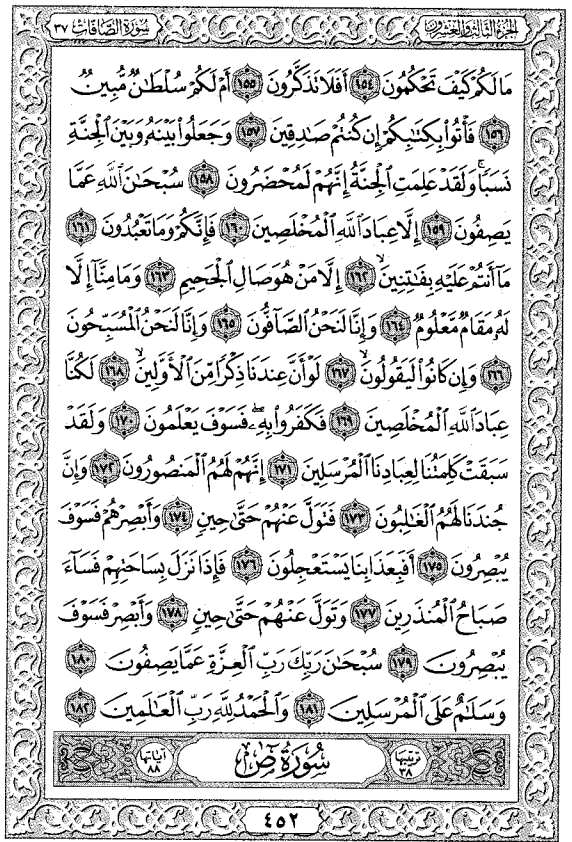 الجزء الثالث والعشرون
سورة الصافات ٣٧
مَا لَكُمْ كَيْفَ تَحْكُمُونَ ١٥٤ أَفَلَا تَذَكَّرُونَ ١٥٥ أَمْ لَكُمْ سُلْطَٰنٌ مُّبِينٌ
١٥٦ فَأْتُوا۟ بِكِتَٰبِكُمْ إِن كُنتُمْ صَٰدِقِينَ ١٥٧ وَجَعَلُوا۟ بَيْنَهُۥ وَبَيْنَ ٱلْجِنَّةِ
نَسَبًا ۚ وَلَقَدْ عَلِمَتِ ٱلْجِنَّةُ إِنَّهُمْ لَمُحْضَرُونَ ١٥٨ سُبْحَٰنَ ٱللَّهِ عَمَّا
يَصِفُونَ ١٥٩ إِلَّا عِبَادَ ٱللَّهِ ٱلْمُخْلَصِينَ ١٦٠ فَإِنَّكُمْ وَمَا تَعْبُدُونَ ١٦١
مَآ أَنتُمْ عَلَيْهِ بِفَٰتِنِينَ ١٦٢ إِلَّا مَنْ هُوَ صَالِ ٱلْجَحِيمِ ١٦٣ وَمَا مِنَّآ إِلَّا
لَهُۥ مَقَامٌ مَّعْلُومٌ ١٦٤ وَإِنَّا لَنَحْنُ ٱلصَّآفُّونَ ١٦٥ وَإِنَّا لَنَحْنُ ٱلْمُسَبِّحُونَ
١٦٦ وَإِن كَانُوا۟ لَيَقُولُونَ ١٦٧ لَوْ أَنَّ عِندَنَا ذِكْرًا مِّنَ ٱلْأَوَّلِينَ ١٦٨ لَكُنَّا
عِبَادَ ٱللَّهِ ٱلْمُخْلَصِينَ ١٦٩ فَكَفَرُوا۟ بِهِۦ ۖ فَسَوْفَ يَعْلَمُونَ ١٧٠ وَلَقَدْ
سَبَقَتْ كَلِمَتُنَا لِعِبَادِنَا ٱلْمُرْسَلِينَ ١٧١ إِنَّهُمْ لَهُمُ ٱلْمَنصُورُونَ ١٧٢ وَإِنَّ
جُندَنَا لَهُمُ ٱلْغَٰلِبُونَ ١٧٣ فَتَوَلَّ عَنْهُمْ حَتَّىٰ حِينٍ ١٧٤ وَأَبْصِرْهُمْ فَسَوْفَ
يُبْصِرُونَ ١٧٥ أَفَبِعَذَابِنَا يَسْتَعْجِلُونَ ١٧٦ فَإِذَا نَزَلَ بِسَاحَتِهِمْ فَسَآءَ
صَبَاحُ ٱلْمُنذَرِينَ ١٧٧ وَتَوَلَّ عَنْهُمْ حَتَّىٰ حِينٍ ١٧٨ وَأَبْصِرْ فَسَوْفَ
يُبْصِرُونَ ١٧٩ سُبْحَٰنَ رَبِّكَ رَبِّ ٱلْعِزَّةِ عَمَّا يَصِفُونَ ١٨٠
وَسَلَٰمٌ عَلَى ٱلْمُرْسَلِينَ ١٨١ وَٱلْحَمْدُ لِلَّهِ رَبِّ ٱلْعَٰلَمِينَ ١٨٢
ترتيبها ٣٨ سُورَةُ صٓ آياتها ٨٨
٤٥٢